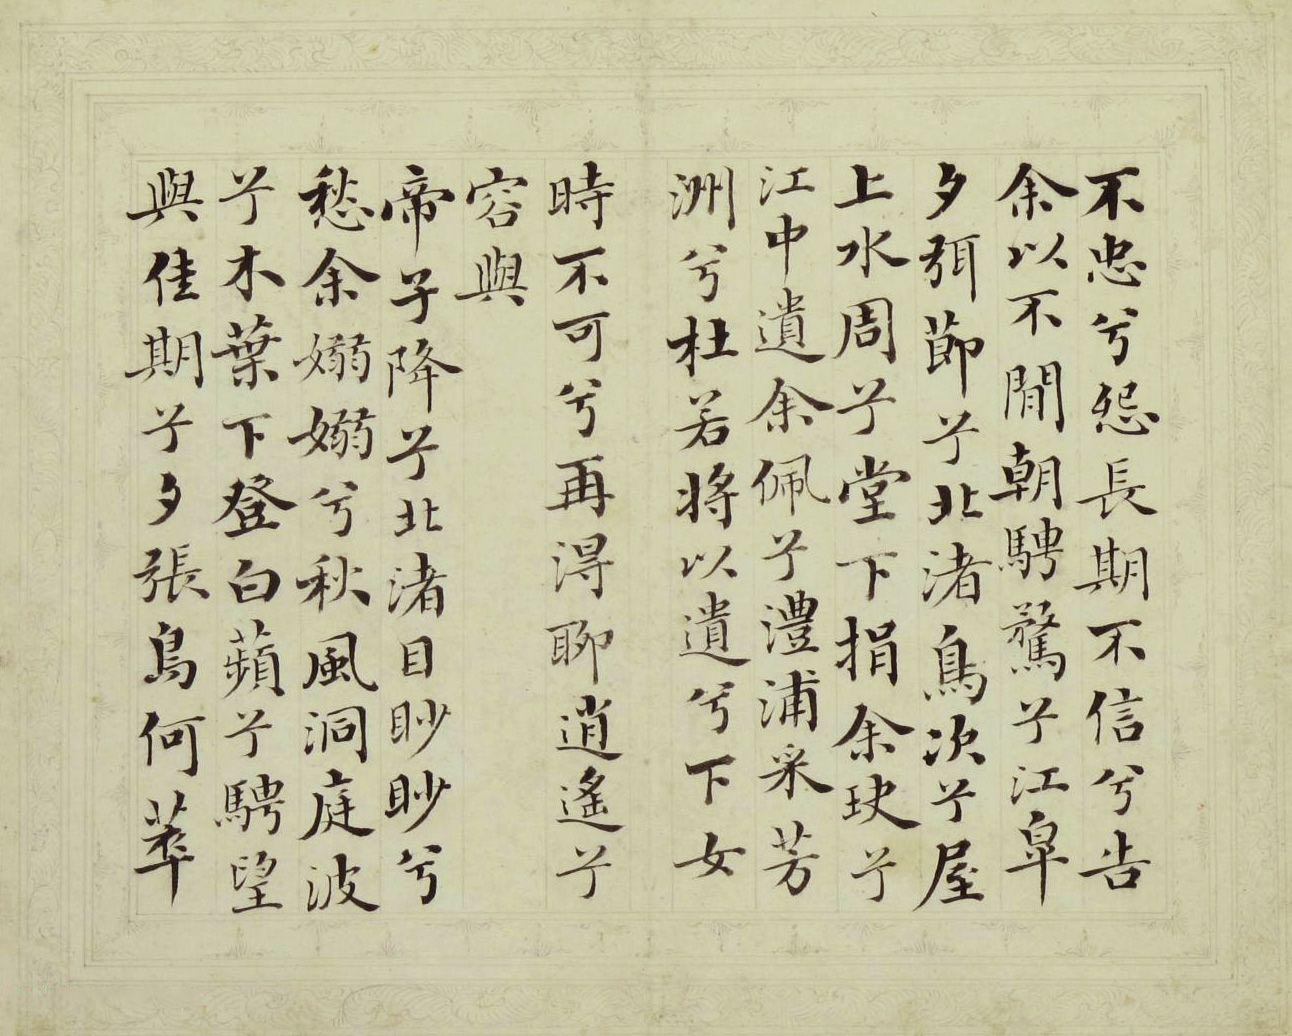 不忠兮怨長期不信兮告
余以不閒朝騁騖兮江皐
夕弭節兮北渚鳥次兮屋
上水周兮堂下捐余玦兮
江中遺余佩兮澧浦采芳
洲兮杜若將以遺兮下女
時不可兮再得聊逍遙兮
容與
帝子降兮北渚目眇眇兮
愁余嫋嫋兮秋風洞庭波
兮木葉下登白蘋兮騁望
與佳期兮夕張鳥何萃